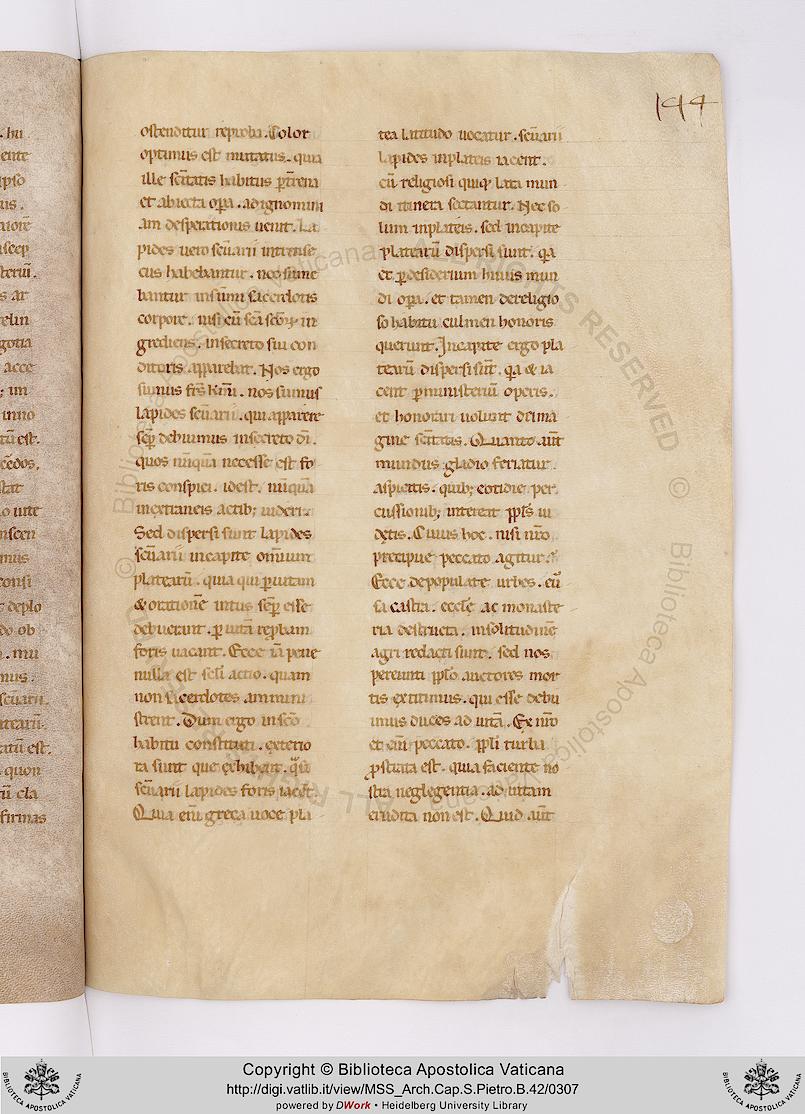 144
ostenditur reproba. Color
optimus est mutatus. quia
ille sc̄itatis habitus p̄ t̄rena
et abiecta op̄a. ad ignomini
am desperationis uenit. La
pides uero sc̄uarii intrinse
cus habebantur. nec sume
bantur in sūmi sacerdotis
corpore. nisi cū sc̄a sc̄oꝝ in
grediens. in secreto sui con
ditoris apparebat. Nos ergo
sumus fr̄s km̄i. nos sumus
lapides sc̄uarii. qui apparere
sēp debuimus in secreto dī.
quos nūquā necesse est fo
ris conspici. id est. nūquā
in extraneis actib; uideri.
Sed dispersi sunt lapides
sc̄uarii in capite omnium
platearū. quia qui p̄ uitam
& orationē intus sēp esse
debuerunt. p̄ uitā rep̄bam
foris uacant. Ecce iā pene
nulla est sc̄li actio. quam
non sacerdotes ammini
strent. Dum ergo in sc̄o
habitu constituti. exterio
ra sunt que exhibent. q̄si
sc̄uarii lapides foris iacēt.
Quia enī greca uoce pla
tea latitudo uocatur. sc̄uarii
lapides in plateis iacent.
cū religiosi quiq; lata mun
di itinera sectantur. Nec so
lum in plateis. sed in capite
platearū dispersi sunt. q̄a
et p̄ desiderium huius mun
di op̄a. et tamen de religio
so habitu culmen honoris
querunt. In capite ergo pla
tearū dispersi sūt. q̄a & ia
cent p̄ ministerium operis.
et honorari uolunt de ima
gine sc̄itatis. Quanto aūt
mundus gladio feriatur.
aspicitis. quib; cotidie per
cussionib; intereat pp̄ls ui
detis. Cuius hoc. nisi nr̄o
precipue peccato agitur.
Ecce depopulate urbes. eū
sa castra. eccl̄e ac monaste
ria destructa. in solitudinē
agri redacti sunt. sed nos
pereunti pp̄lo auctores mor
tis extitimus. qui esse debu
imus duces ad uitā. Ex nr̄o
et enī peccato. pp̄li turba
p̄strata est. quia faciente no
stra neglegentia. ad uitam
erudita non est. Quid aūt
Copyright © Biblioteca Apostolica Vaticana
http://digi.vatlib.it/view/MSS_Arch.Cap.S.Pietro.B.42/0307
powered by DWork • Heidelberg University Library